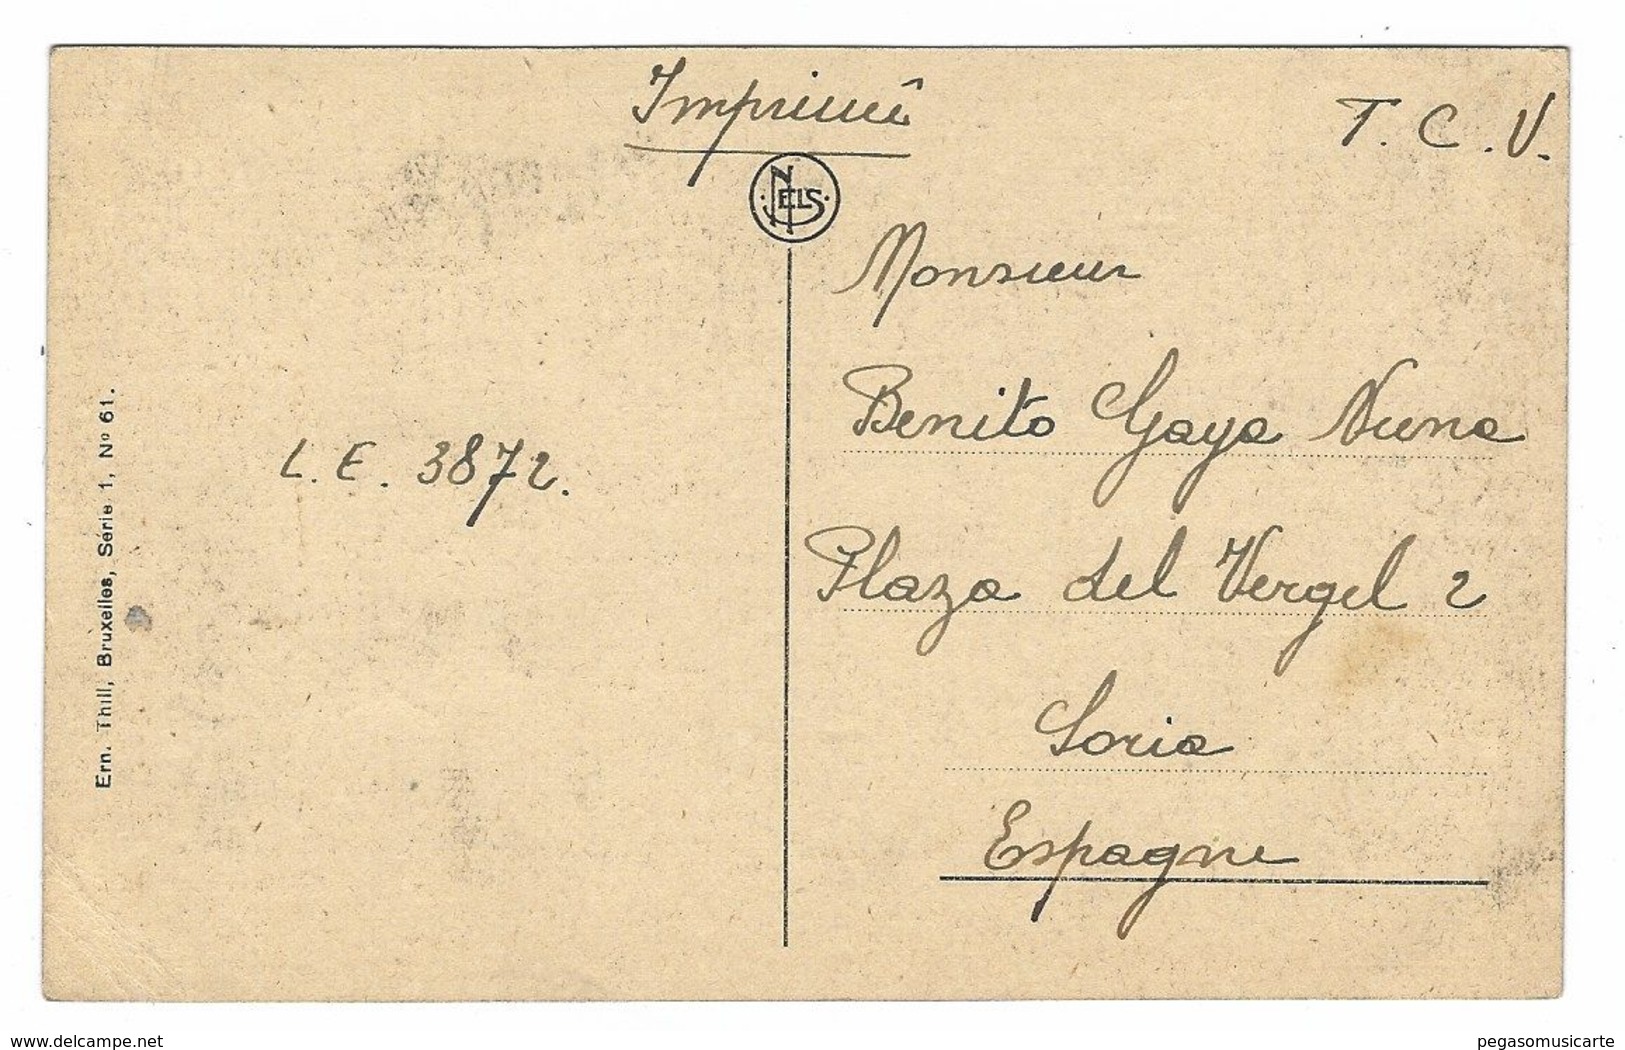 Imprimê
T. C. V.
NELS
Monsieur
Benito Gaya Nuno
Plaza del Vergel 2
Soria
Espagne
L. E. 3872.
Ern. Thill, Bruxelles, Série 1, Nº 61.
www.delcampe.net
pegasomusicarte